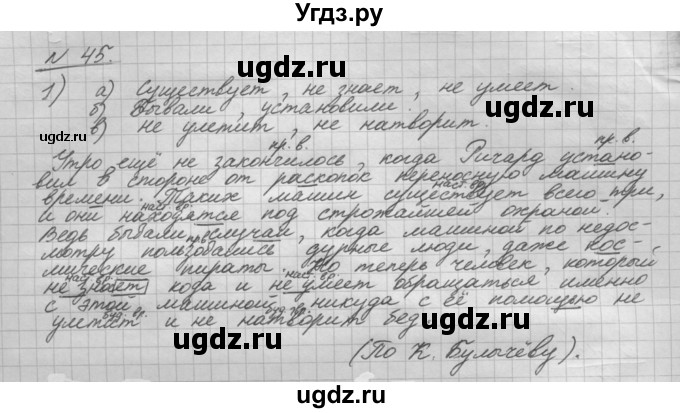 Угдз.ру
N 45.
1) а) Существует, не знает, не умеет.
б) Бывали, установили.
в) не улетит, не натворит.
пр. в. пр. в.
Утро ещё не закончилось, когда Ричард устано-
вил в стороне от раскопок переносную машину
времени. Таких машин существует всего три,
и они находятся под строжайшей охраной.
Ведь бывали случаи, когда машиной по недос-
мотру пользовались дурные люди, даже кос-
мические пираты. Но теперь человек, который
не знает кода и не умеет обращаться именно
с этой машиной, никуда с её помощью не
улетит и не натворит бед.
(По К. Булычёву).
ugdz.ru
ugdz.ru
ugdz.ru
ugdz.ru
ugdz.ru
ugdz.ru
ugdz.ru
ugdz.ru
ugdz.ru
ugdz.ru
ugdz.ru
Угдз.ру